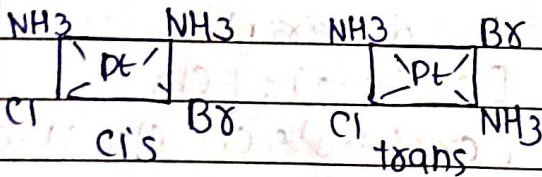 NH3 NH3 NH3 Br
Pt Pt
Cl Br Cl NH3
cis trans